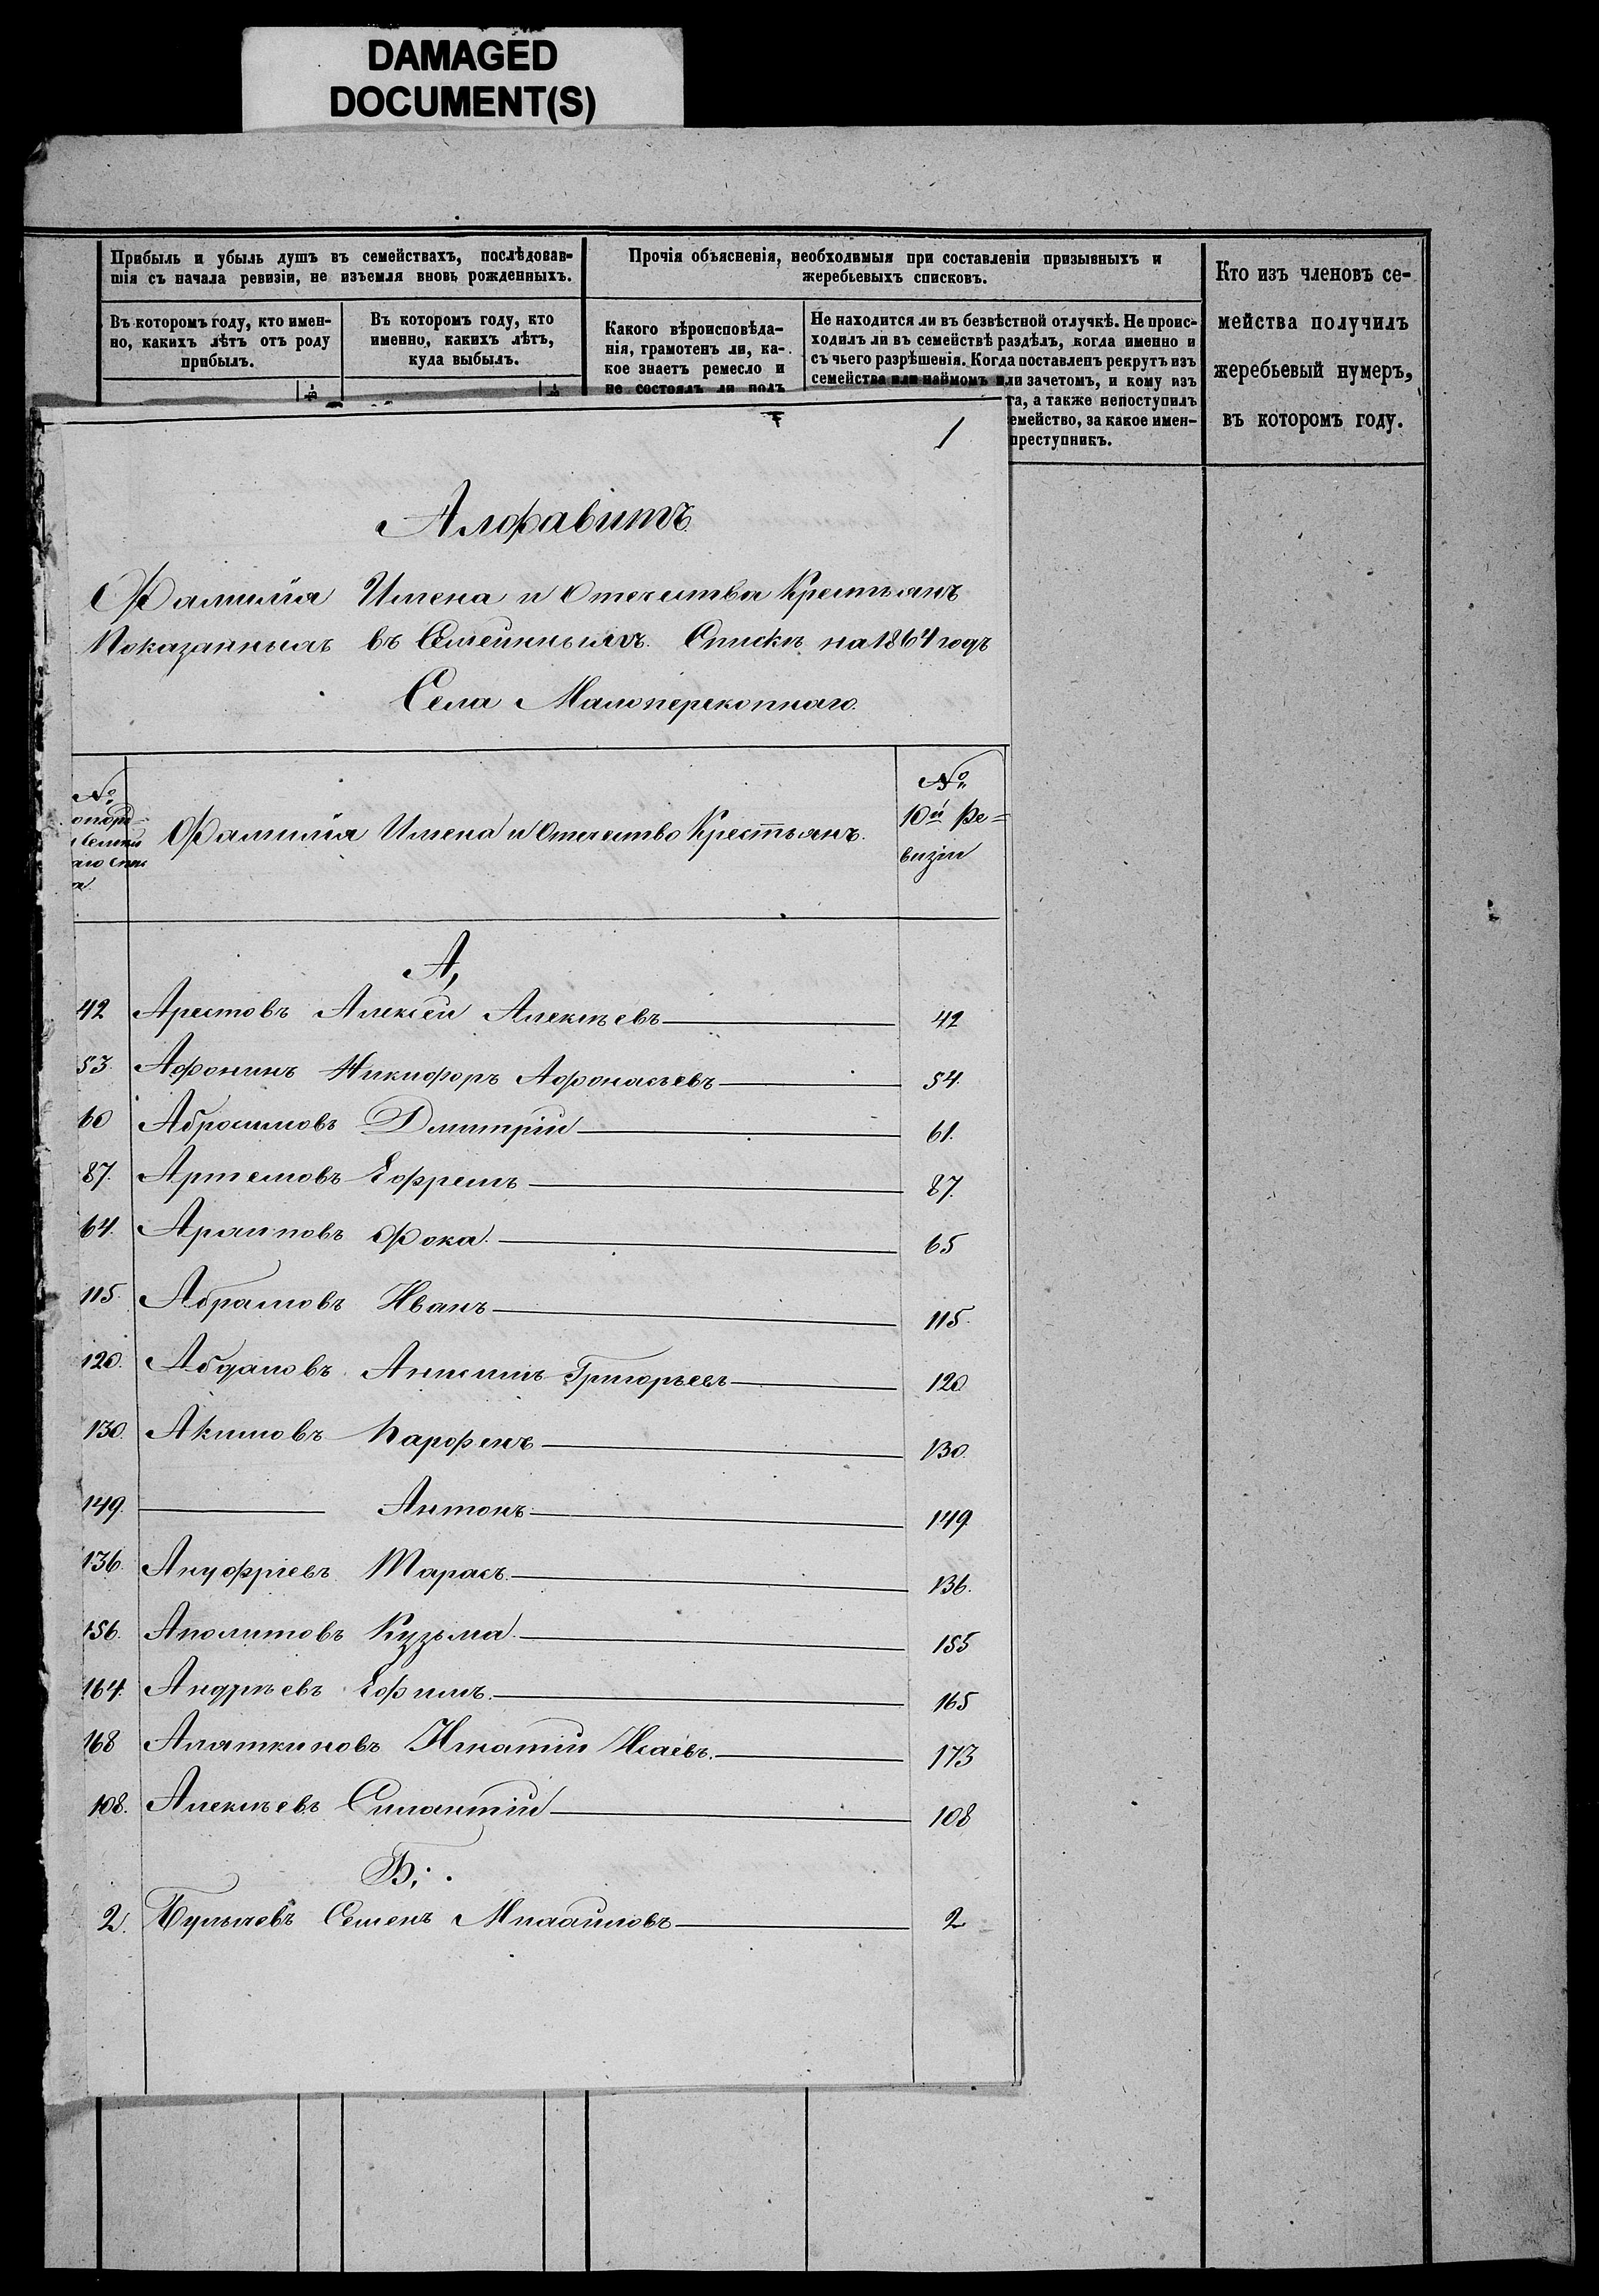 DAMAGED
DOCUMENT(S)
Прибыль и убыль душъ въ семействахъ, послѣдовав-
шія съ начала ревизіи, не изъемля вновь рожденныхъ.
Въ которомъ году, кто имен-
но, какихъ лѣтъ отъ роду
прибылъ.
Въ которомъ году, кто
именно, какихъ лѣтъ,
куда выбылъ.
Прочія объясненія, необходимыя при составленіи призывныхъ и
жеребьевыхъ списковъ.
Какого вѣроисповѣда-
нія, грамотенъ ли, ка-
кое знаетъ ремесло и
не состоялъ ли подъ
Не находится ли въ безвѣстной отлучкѣ. Не проис-
ходилъ ли въ семействѣ раздѣлъ, когда именно и
съ чьего разрѣшенія. Когда поставленъ рекрутъ изъ
семейства или наймомъ или зачетомъ, и кому изъ
та, а также непоступилъ
емейство, за какое имен-
преступникъ.
Кто изъ членовъ се-
мейства получилъ
жеребьевый нумеръ,
въ которомъ году.
1
Алфавитъ
Фамилія Имена и Отечества Крестьянъ
Показанныхъ въ Семейныхъ Списки на 1864 годъ
Села Малоперекопнаго.
№
Фамилія Имена и Отечество Крестьянъ.
№
10й Ре=
визіи
А,
42 Арестовъ Алексеи Алексѣевъ 42
53. Афонинъ Никифоръ Афонасьевъ 54.
60 Абросимовъ Дмитріи 61.
87. Артемовъ Ефремъ 87.
64. Архиповъ Фока. 65
115. Абрамовъ Иванъ 115.
120. Абдаловъ Анисимъ Григорьевъ 120
130. Акимовъ Парфенъ 130.
149. Антонъ 149.
136. Ануфріевъ Тарасъ. 136.
156. Аполитовъ Кузьма. 155
164. Андрѣевъ Ефимъ. 165
168 Аляткиновъ Игнатіи Исаевъ. 173
108. Алексѣевъ Силантіи 108
Б;
2. Булычевъ Семенъ Михаиловъ 2